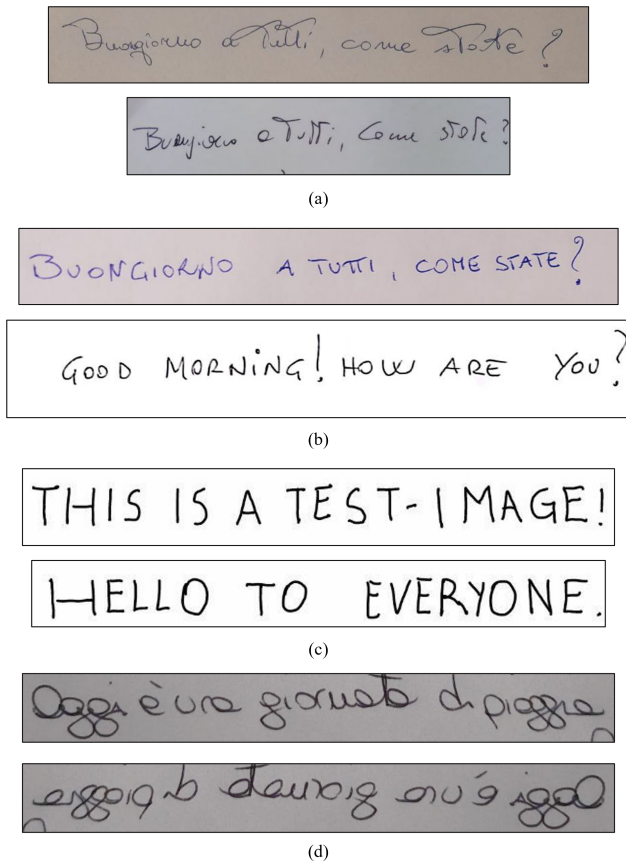 Buongiorno a Tutti, come state?
Buongiorno a Tutti, Come state?
(a)
BUONGIORNO A TUTTI, COME STATE?
GOOD MORNING! HOW ARE YOU?
(b)
THIS IS A TEST-IMAGE!
HELLO TO EVERYONE.
(c)
Oggi è una giornata di pioggia
Oggi è una giornata di pioggia
(d)